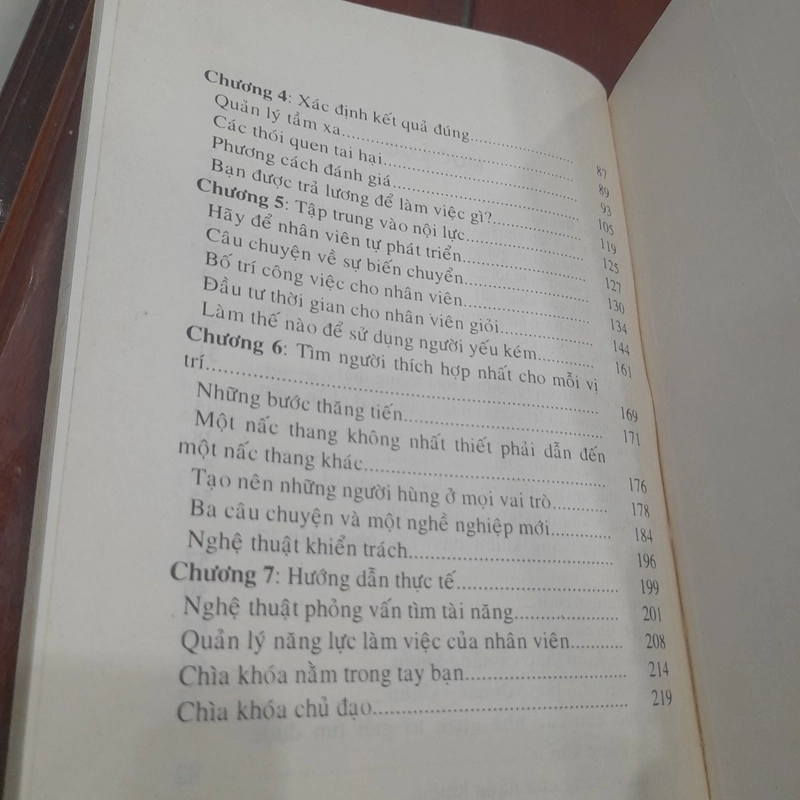 Chương 4: Xác định kết quả đúng.................. 87
Quản lý tầm xa.................. 89
Các thói quen tai hại.................. 93
Phương cách đánh giá.................. 105
Bạn được trả lương để làm việc gì?.................. 119
Chương 5: Tập trung vào nội lực.................. 125
Hãy để nhân viên tự phát triển.................. 127
Câu chuyện về sự biến chuyển.................. 130
Bố trí công việc cho nhân viên.................. 134
Đầu tư thời gian cho nhân viên giỏi.................. 144
Làm thế nào để sử dụng người yếu kém.................. 161
Chương 6: Tìm người thích hợp nhất cho mỗi vị
trí.................. 169
Những bước thăng tiến.................. 171
Một nấc thang không nhất thiết phải dẫn đến
một nấc thang khác.................. 176
Tạo nên những người hùng ở mọi vai trò.................. 178
Ba câu chuyện và một nghề nghiệp mới.................. 184
Nghệ thuật khiển trách.................. 196
Chương 7: Hướng dẫn thực tế.................. 199
Nghệ thuật phỏng vấn tìm tài năng.................. 201
Quản lý năng lực làm việc của nhân viên.................. 208
Chìa khóa nằm trong tay bạn.................. 214
Chìa khóa chủ đạo.................. 219